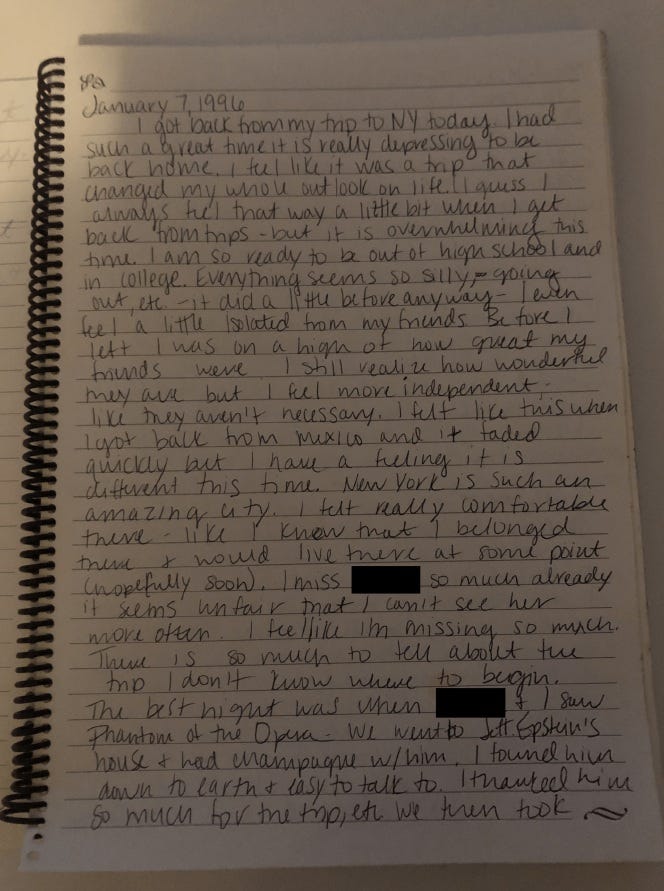 January 7, 1996
I got back from my trip to NY today. I had
such a great time it is really depressing to be
back home. I feel like it was a trip that
changed my whole outlook on life. I guess I
always feel that way a little bit when I get
back from trips - but it is overwhelming this
time. I am so ready to be out of high school and
in college. Everything seems so silly, - going
out, etc - it did a little before anyway - I even
feel a little isolated from my friends. Before I
left I was on a high of how great my
friends were. I still realize how wonderful
they are but I feel more independent -
like they aren't necessary. I felt like this when
I got back from Mexico and it faded
quickly but I have a feeling it is
different this time. New York is such an
amazing city. I felt really comfortable
there - like I know that I belonged
there & would live there at some point
(hopefully soon). I miss so much already
it seems unfair that I can't see her
more often. I feel like I'm missing so much.
There is so much to tell about the
trip I don't know where to begin.
The best night was when & I saw
Phantom of the Opera - We went to Jeff Epstein's
house & had champagne w/him. I found him
down to earth & easy to talk to. I thanked him
so much for the trip, etc. We then took